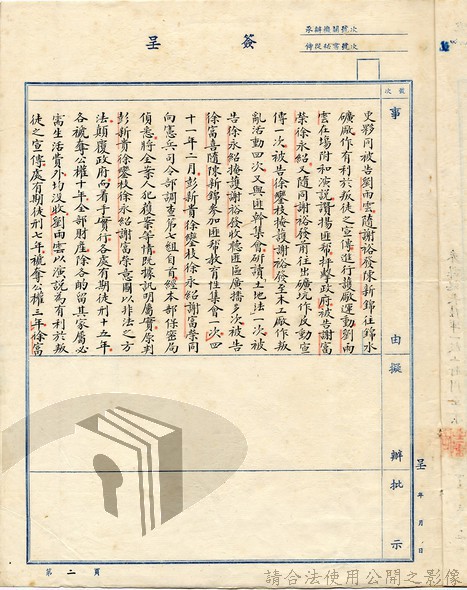 簽呈
承辦機關號次
傳遞秘密號次
號次
事由擬辦批示
史影冈被告劉而雲隨謝裕發陳新錦往錦水
礦廠作有利於叛徒之宣傳進行護廠運動劉而
雲在場附和演説讚揚匪幫抨擊政府被告謝富
榮徐永紹又隨同謝裕發前往出礦坑作反動宣
傳一次被告徐鑾枝掩護謝裕發至木工廠作叛
亂活動四次又與匪幹集會研讀土地法一次被
告徐永紹掩護謝裕發收聽匪區廣播多次被告
徐富喜隨陳新錦參加匪幫教育性集會一次四
十一年二月彭新貴徐鑾枝徐永紹謝富榮同
向憲兵司令部調查第七組自首經本部保密局
偵悉將全案人犯獲案等情既據訊明屬實原判
彭新貴徐鑾枝徐永紹謝富榮意圖以非法之方
法顛覆政府而着手實行各處有期徒刑十五年
各褫奪公權十年全部財產除各酌留其家屬必
需生活費外均沒收劉而雲以演説為有利於叛
徒之宣傳處有期徒刑七年褫奪公權三年徐富
呈
年月日
第二頁
請合法使用公開之影像